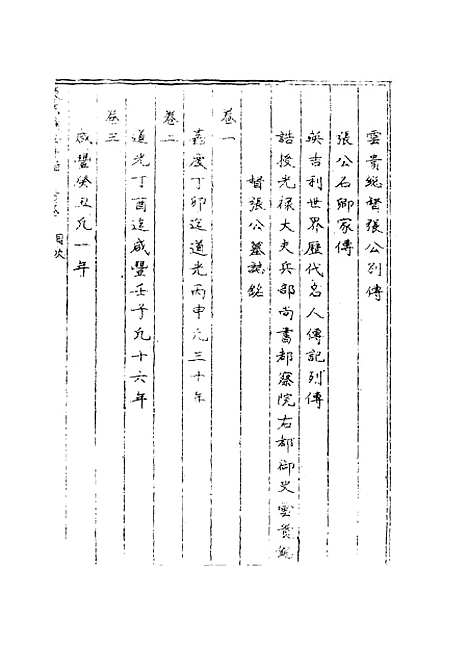 雲貴總督張公列傳
張公石卿家傳
英吉利世界歷代名人傳記列傳
誥授光祿大夫兵部尚書都察院右都御史雲貴總
督張公墓誌銘
卷一
嘉慶丁卯迄道光丙申凡三十年
卷二
道光丁酉迄咸豐壬子凡十六年
卷三
咸豐癸丑凡一年
目次